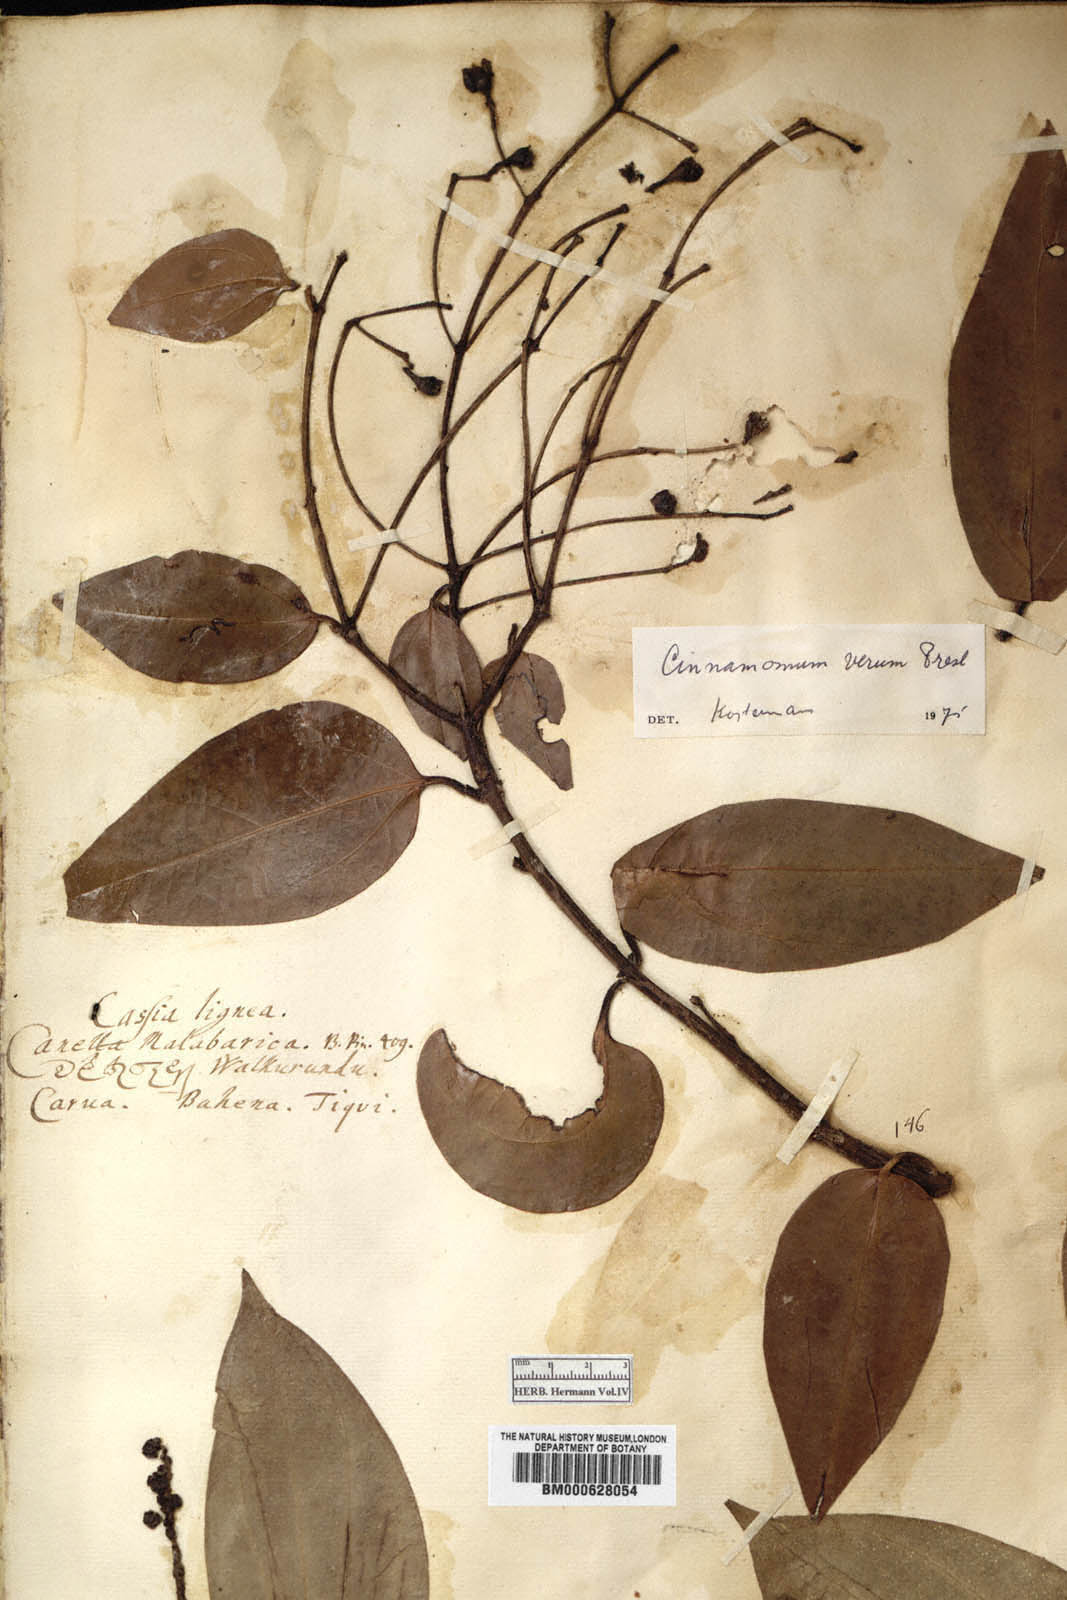 Cinnamomum verum Presl
DET. Kostermans 1975
Cassia lignea.
Canella Malabarica. B. Pin. 409.
Walkurundu.
Carua. Bahena. Tiqui.
146
mm 1 2 3
HERB. Hermann Vol.IV
THE NATURAL HISTORY MUSEUM,LONDON
DEPARTMENT OF BOTANY
BM000628054